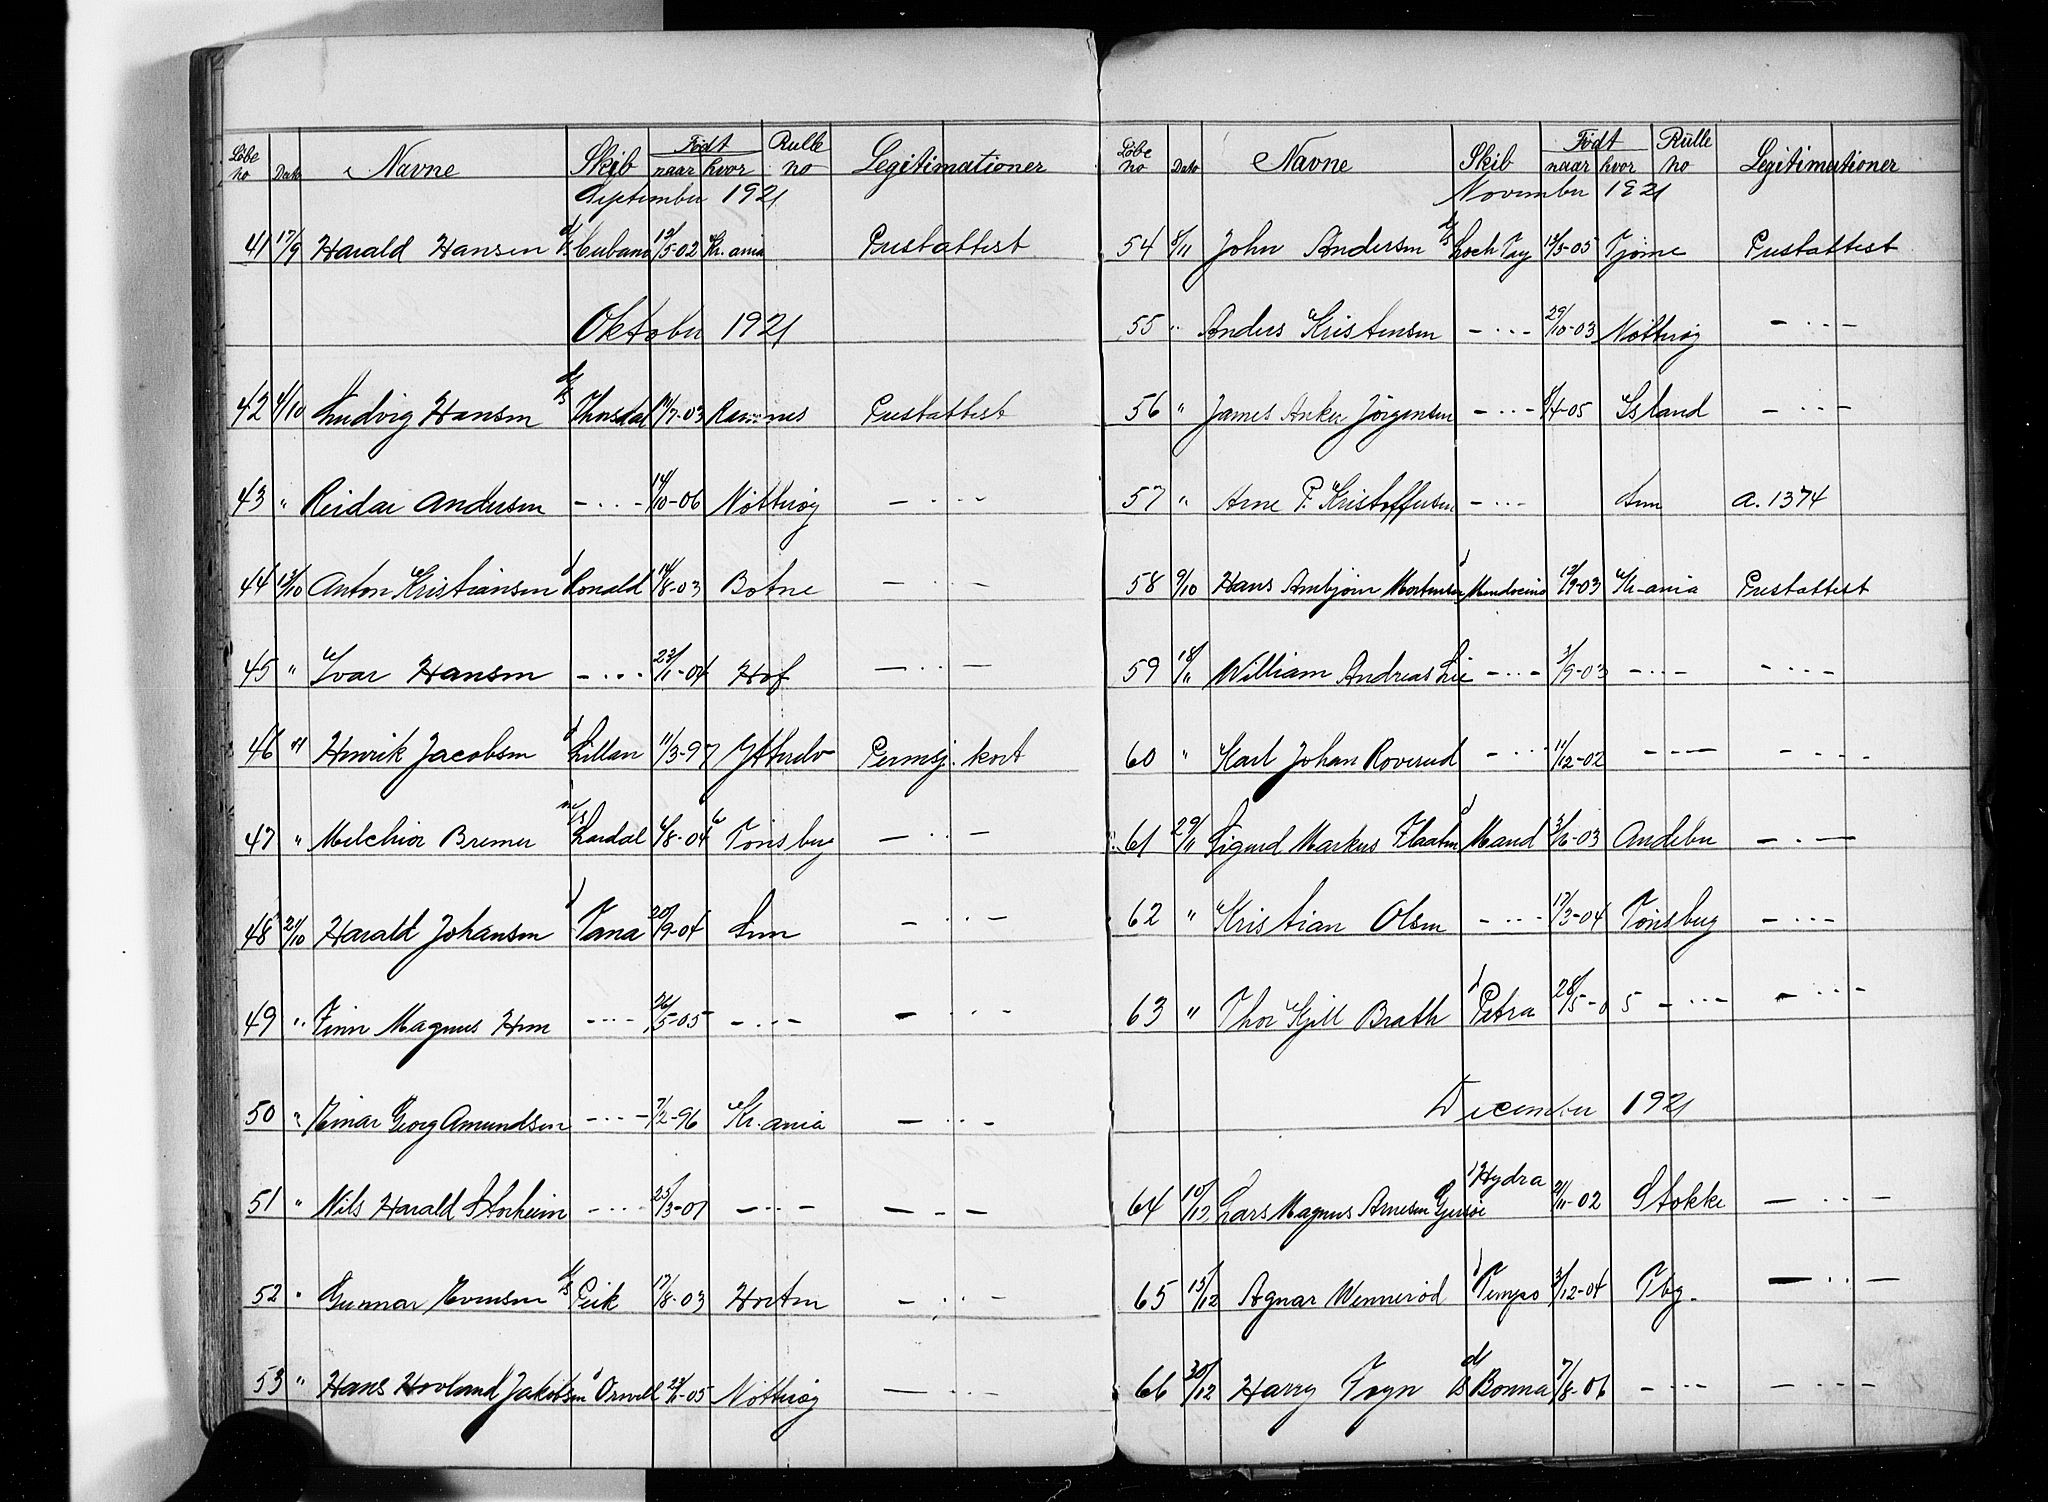 Løbe no Dato Navne Skib Født naar hvor Rulle no Legitimationer
September 1921
41 17/9 Harald Hansen d/s Cubano 12/5-02 Kr.ania Prestattest
Oktober 1921
42 4/10 Ludvig Hansen d/s Thorsdal 14/7-03 Ramnes Prestattest
43 " Reidar Andersen - · · · - 14/10-06 Nøtterøy - · · -
44 13/10 Anton Kristiansen d Ronald 14/8-03 Botne - · · -
45 " Ivar Hansen - · · · 23/11-04 Hof - · · -
46 " Henrik Jacobsen d Lillan 11/3-97 Permsj. kort
47 " Melchior Bremer m/s Lardal 4/8-04 Tønsberg - · · -
48 21/10 Harald Johansen d Tana 20/9-04 Sem - · · -
49 " Finn Magnus Hem - · · · 26/5-05 - · · - - · · -
50 " Einar Georg Amundsen - · · · - 7/2-96 Kr.ania - · · -
51 " Nils Harald Storheim - · · · - 25/3-01 - · · - - - -
52 " Gunnar Evensen d/s Peik 17/8-03 Horten - · · -
53 " Hans Hovland Jakobsen d Orwell 22/11-05 Nøtterøy - · · -
Løbe no Dato Navne Skib Født naar hvor Rulle no Legitimationer
November 1921
54 8/11 John Andersen d/s Loch Tay 12/5-05 Tjøme Prestattest
55 " Anders Kristensen - · · · - 29/10-03 Nøtterøy - · · · -
56 " James Anker Jørgensen - · · · - 8/4-05 Island - · · -
57 " Arne P. Kristoffersen - · · · - Sem A. 1374
58 9/10 Hans Arnbjørn Mortensen d Mendocino 12/9-03 Kr-ania Prestattest
59 18/11 William Andreas Lie - · · · - 3/9-03 - · · · - - · · · -
60 " Karl Johan Roverud - · · · 11/12-02 - · · - - · · -
61 29/11 Sigurd Markus Flaaten d Maud 3/6-03 Andebu - · -
62 " Kristian Olsen - · · · - 17/3-04 Tønsberg - · · · -
63 " Thor Kjell Brath d Petra 28/5-05 - · · · - - · · · -
December 1921
64 10/12 Lars Magnus Arnesen Gjersøe d Hydra 21/11-02 Stokke - · · -
65 15/12 Agnar Wennerød d Tempo 3/12-04 Tbg. - · · -
66 20/12 Harry Foyn d/s Bonna 7/8-06 - · · · - - · · · -